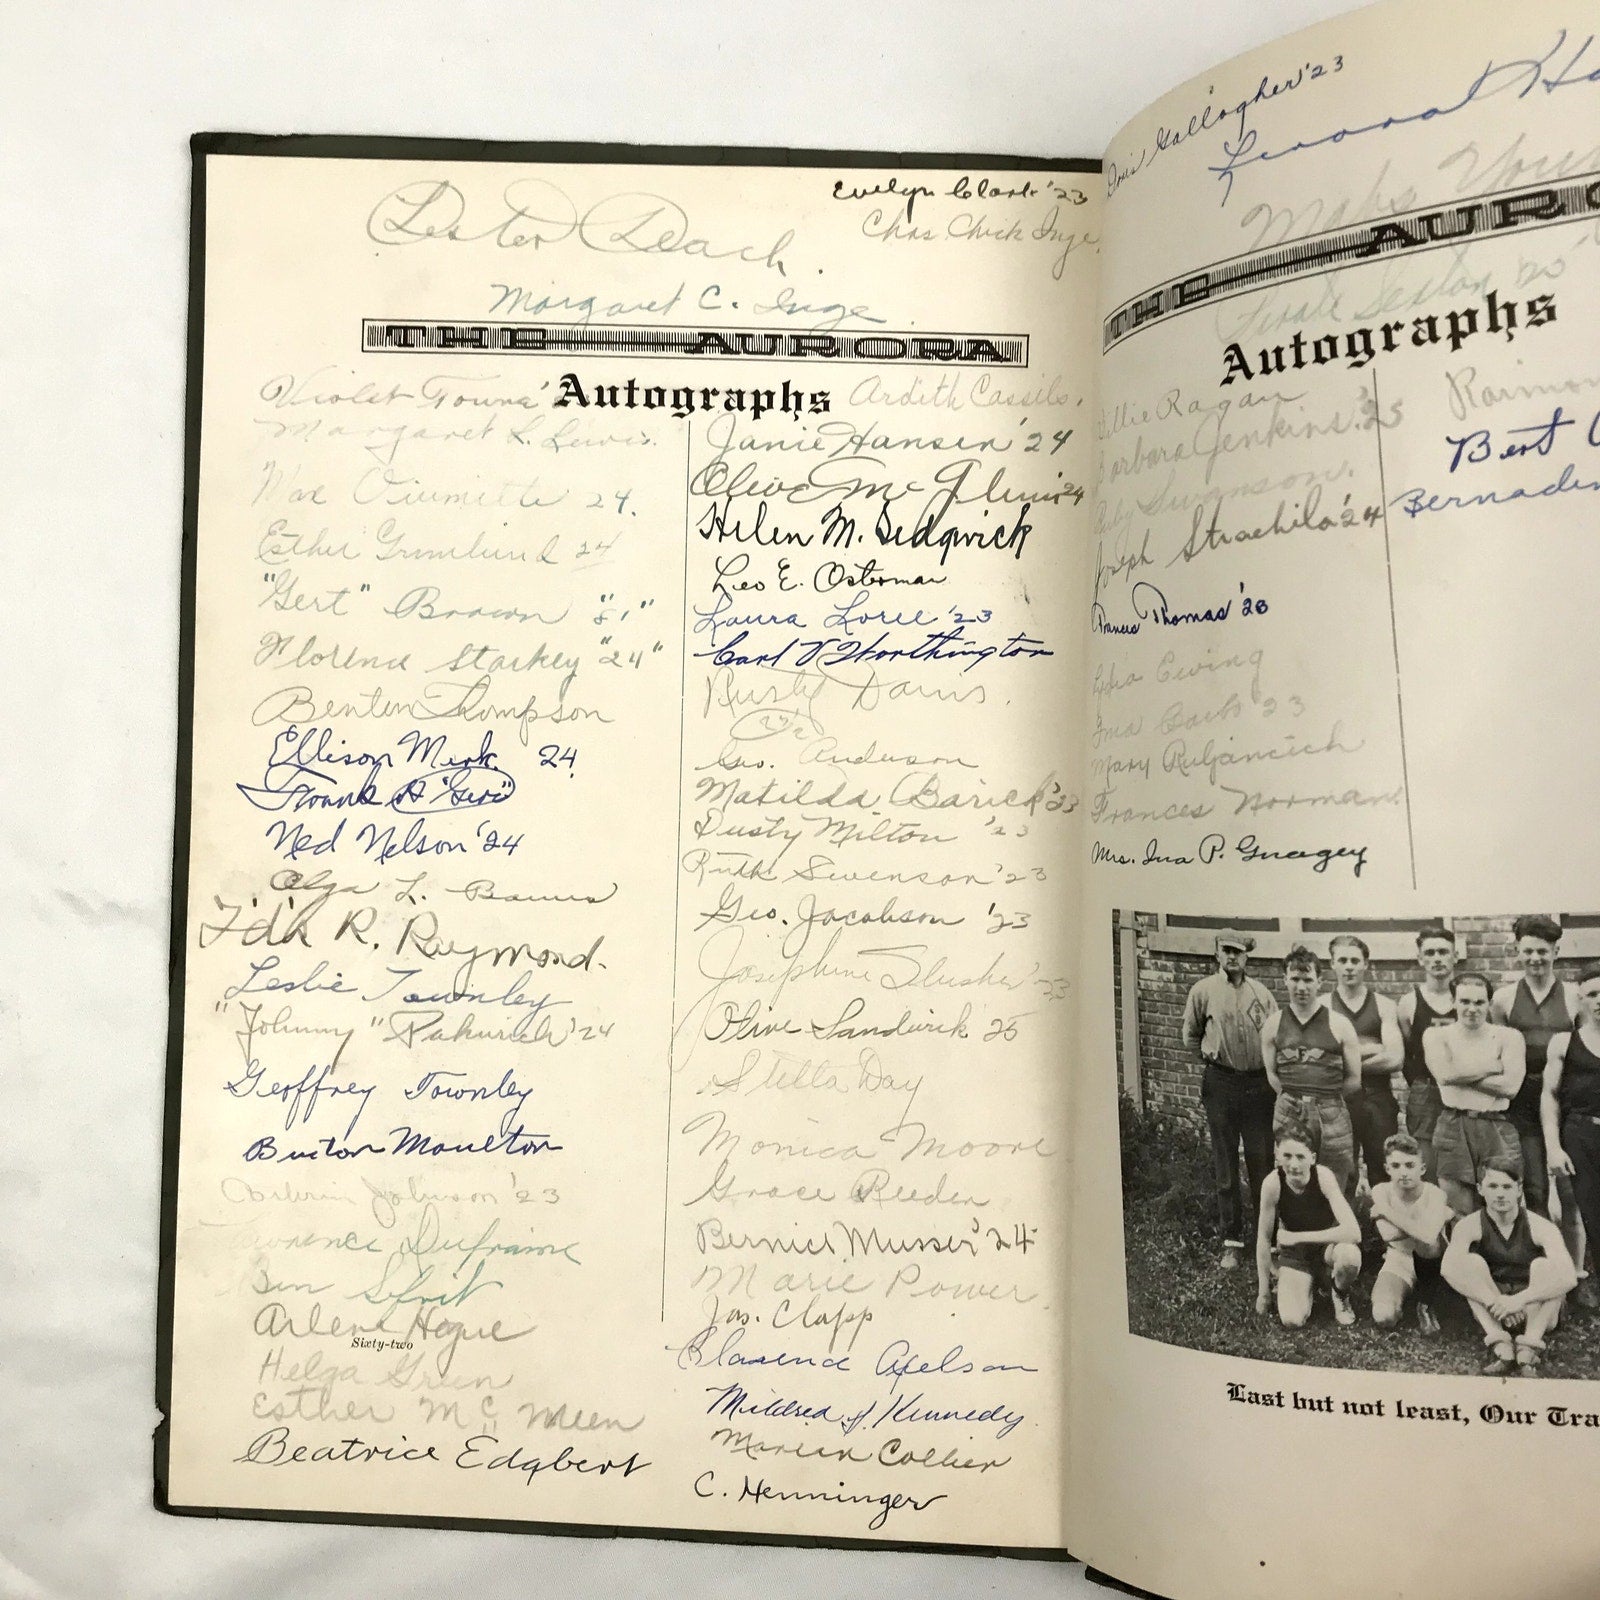 Lester Deach.
Evelyn Clark '23
Chas. Chick Inge.
Margaret C. Inge.
THE AURORA
Autographs
Violet
Margaret L. Lewis.
Max 24.
Esther Gronlund 24
"Gert" Brown
Florence Starkey "24"
Benton Thompson
Ellison Merk 24.
Frank A "Geri"
Ned Nelson '24
Olga L.
Ida R. Raymond.
Leslie Townley
"Johnny" '24
Geoffrey Townley
Burton Moulton
Johnson '23
Dufraine
Arlene Hogue
Sixty-two
Helga Green
Esther Mc Meen
Beatrice Edgbert
Ardith Cassils.
Janie Hansen '24
Olive McGlinn 24
Helen M. Sedgwick
Leo E. Osterman
Laura Loree '23
Carl V Worthington
Rusty Davis.
Geo. Anderson
Matilda Barick '23
Dusty Milton '23
Ruth Swenson '23
Geo. Jacobson '23
Josephine Slusher '23
Olive Landwick 25
Stella Day
Monica Moore
Grace Reeder
Bernice Musser '24
Marie Power.
Jas. Clapp
Clarence Axelson
Mildred J. Kennedy.
Marian Collier
C. Henninger
Doris Gallagher '23
THE AURO
Autographs
Ragan
Barbara Jenkins. '25
Ruby Swanson.
Joseph Strachila '24
Francis Thomas '23
Lydia Ewing
Ina '23
Mary Ruljancich
Frances Norman.
Mrs. Ina P. Gnagey
Bert
Last but not least, Our Tra